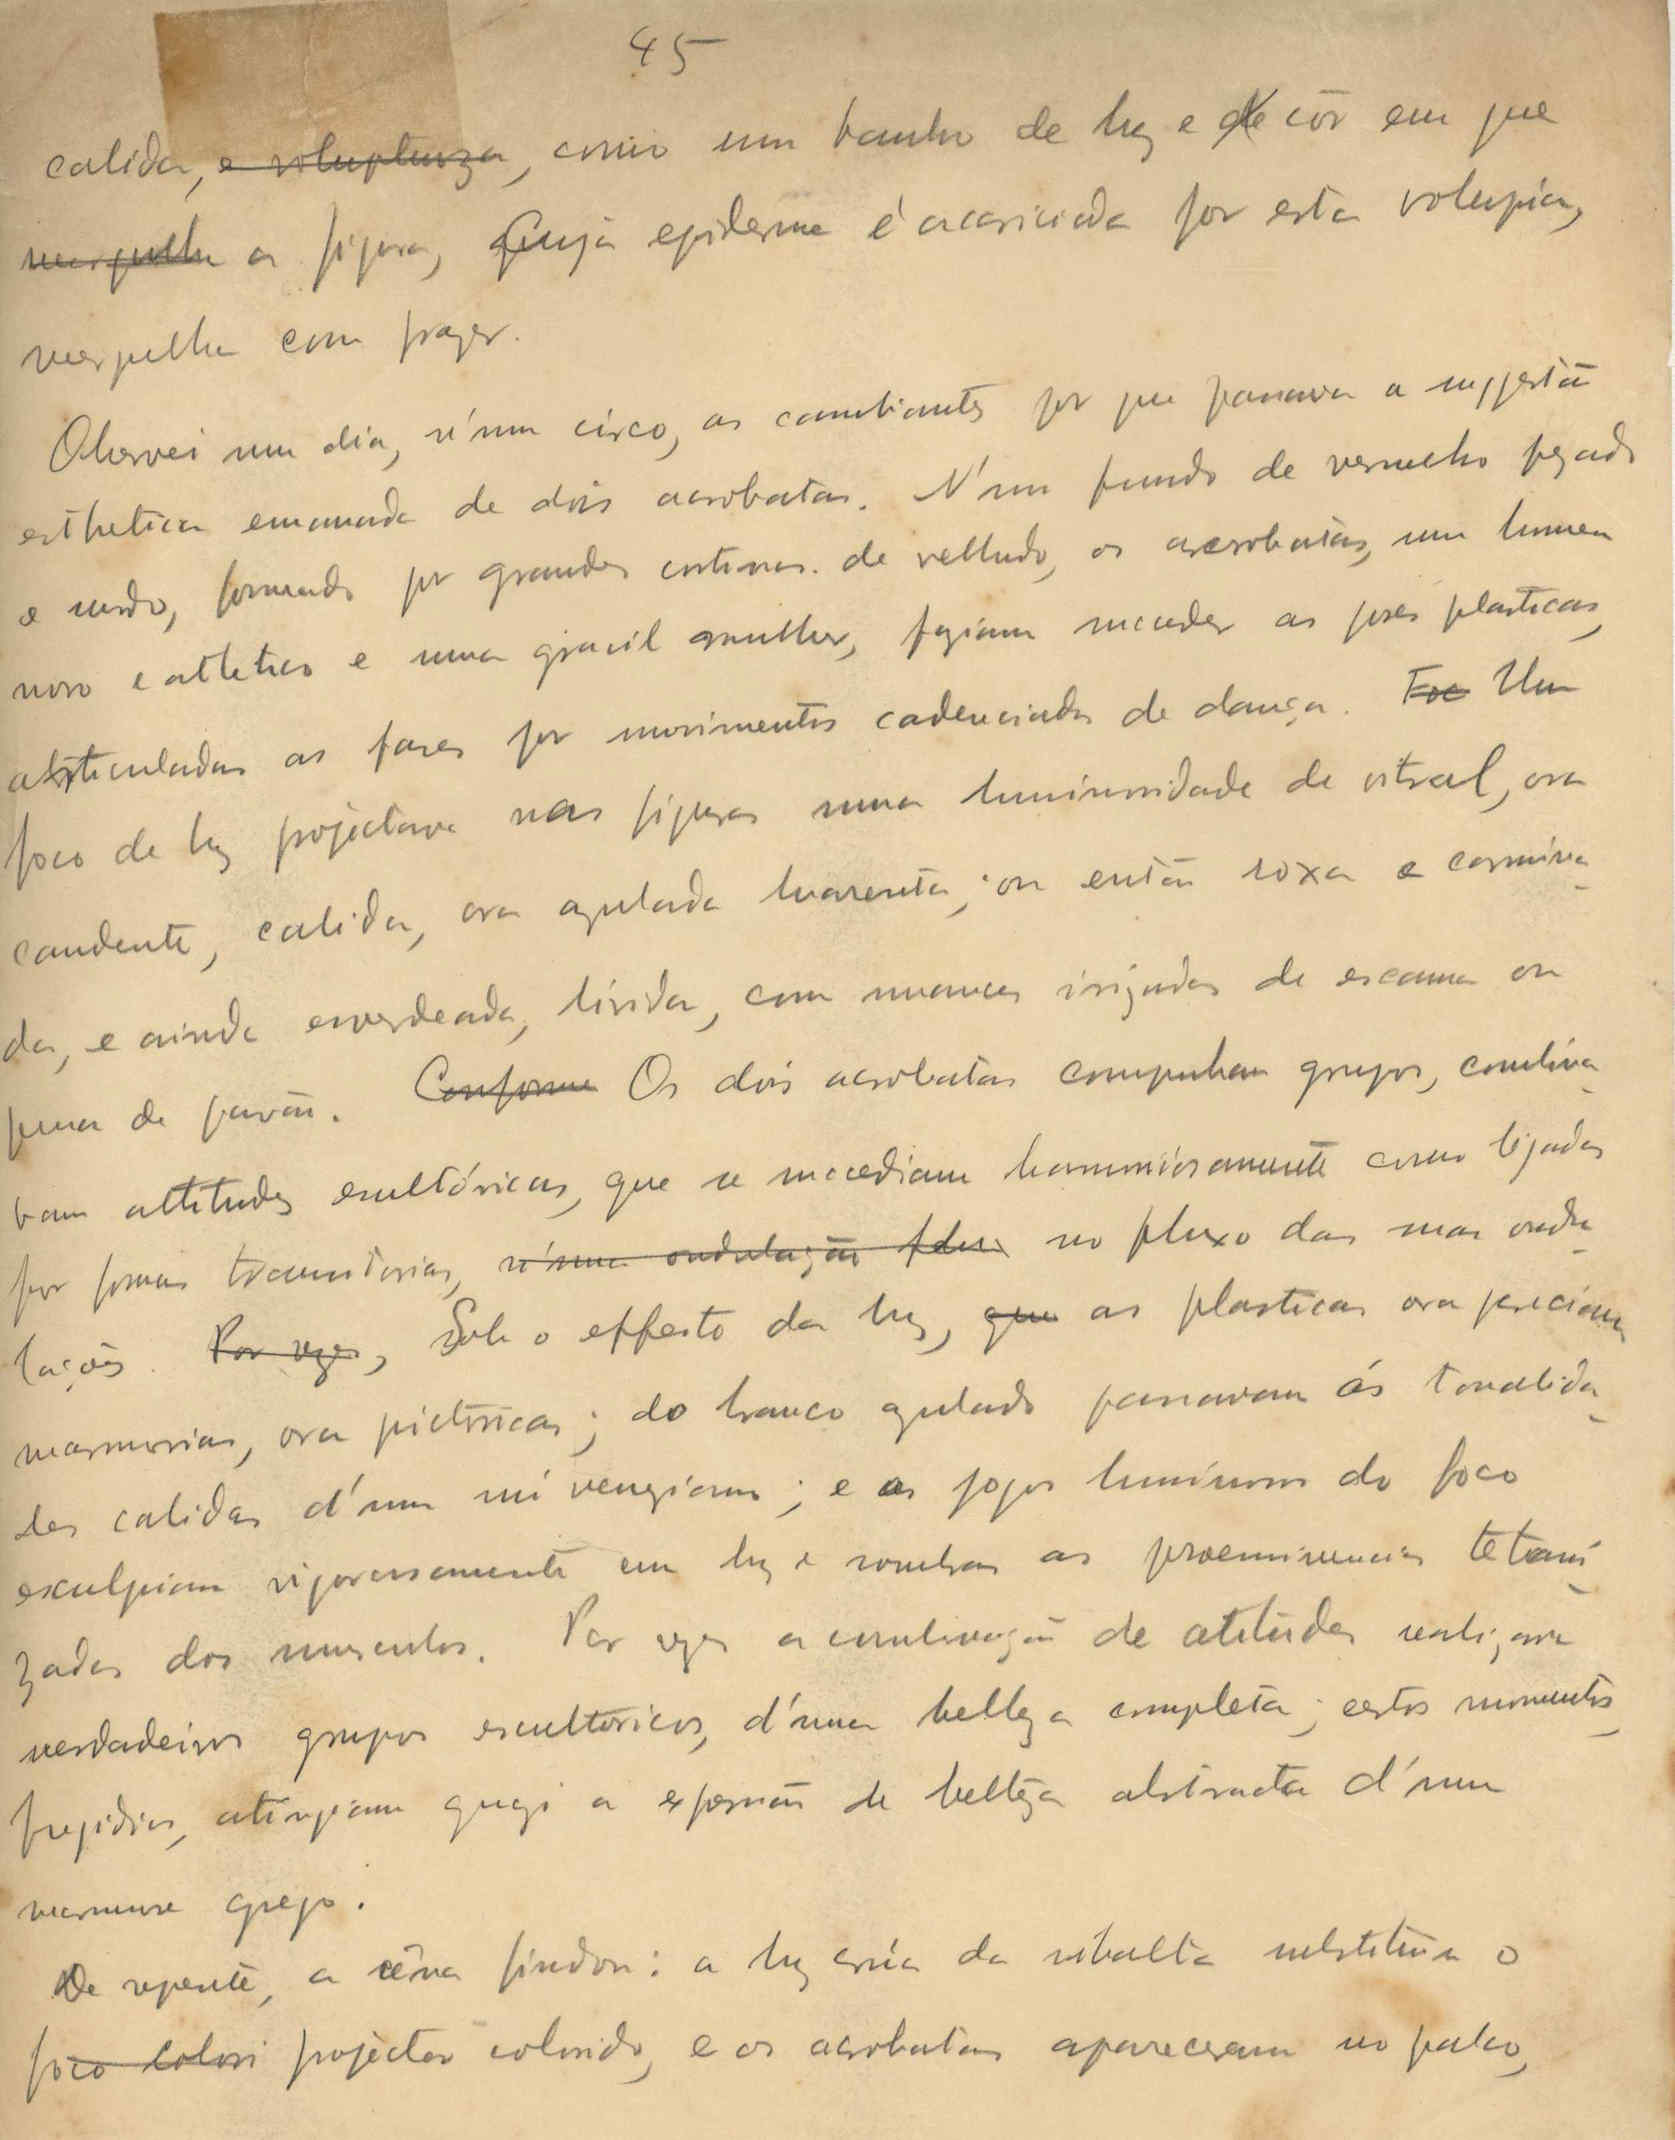 45
calida, e voluptuoza, como um banho de luz e de côr em que
mergulha a figura, cuja epiderme é acariciada por esta volupia,
mergulha com prazer.
Observei um dia, n'um circo, as cambiantes por que passava a suggestão
esthetica emanada de dois acrobatas. N'um fundo de vermelho pezado
e surdo, formado por grandes cortinas de velludo, os acrobatas, um homem
novo e athletico e uma gracil mulher, faziam succeder as poses plasticas,
articuladas as fases por movimentos cadenciados de dança. Foc Um
foco de luz projectava nas figuras uma luminosidade de vitral, ora
candente, calida, ora azulada luarenta; ou então roxa e carmina-
da, e ainda esverdeada, livida, com nuances irizadas de escama ou
pena de pavão. Conforme Os dois acrobatas compunham grupos, combina-
vam attitudes escultóricas, que se succediam harmoniosamente como ligadas
por formas transitorias, n'uma ondulação no fluxo das suas ondu-
lações. Por vezes, Sob o effeito da luz, que as plasticas ora pareciam
marmorias, ora pictoricas; do branco azulado passavam ás tonalida-
des calidas d'um nú veneziano; e os jogos luminosos do foco
esculpiam vigorosamente em luz e sombra as proeminencias tetani-
zadas dos musculos. Por vezes a combinação de atitudes realizava
verdadeiros grupos escultoricos, d'uma belleza completa; certos momentos,
fugidios, atingiam quazi a expressão de belleza abstracta d'um
marmore grego.
De repente, a cêna findou: a luz crúa da ribalta substituiu o
foco colori projector colorido, e os acrobatas apareceram no palco,